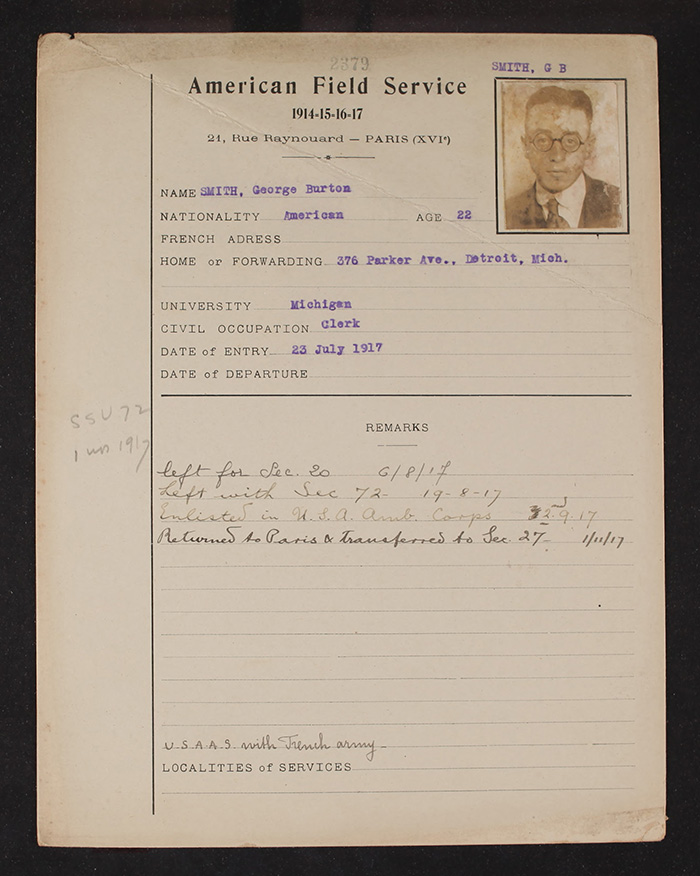 2379
SMITH, G B
American Field Service
1914-15-16-17
21, Rue Raynouard — PARIS (XVIe)
NAME SMITH, George Burton
NATIONALITY American AGE 22
FRENCH ADRESS
HOME or FORWARDING 376 Parker Ave., Detroit, Mich.
UNIVERSITY Michigan
CIVIL OCCUPATION Clerk
DATE of ENTRY 23 July 1917
DATE of DEPARTURE
REMARKS
SSU 72
1 1917
left for Sec. 20 6/8/17
Left with Sec 72- 19-8-17
Enlisted in U.S.A. Amb. Corps 9.17
Returned to Paris & transferred to Sec. 27- 1/11/17
U.S.A.A.S with French army
LOCALITIES of SERVICES